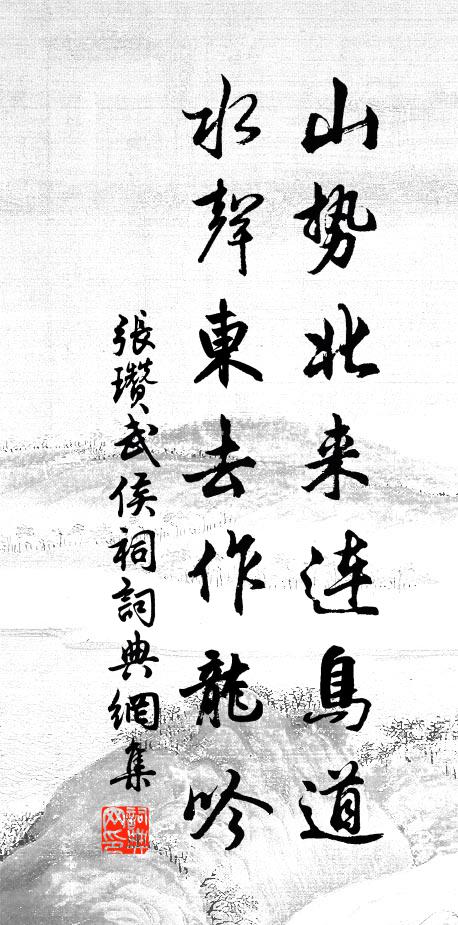 山势北来连鳥道
水聲東去作龍吟
張瓚武侯祠詞典網集